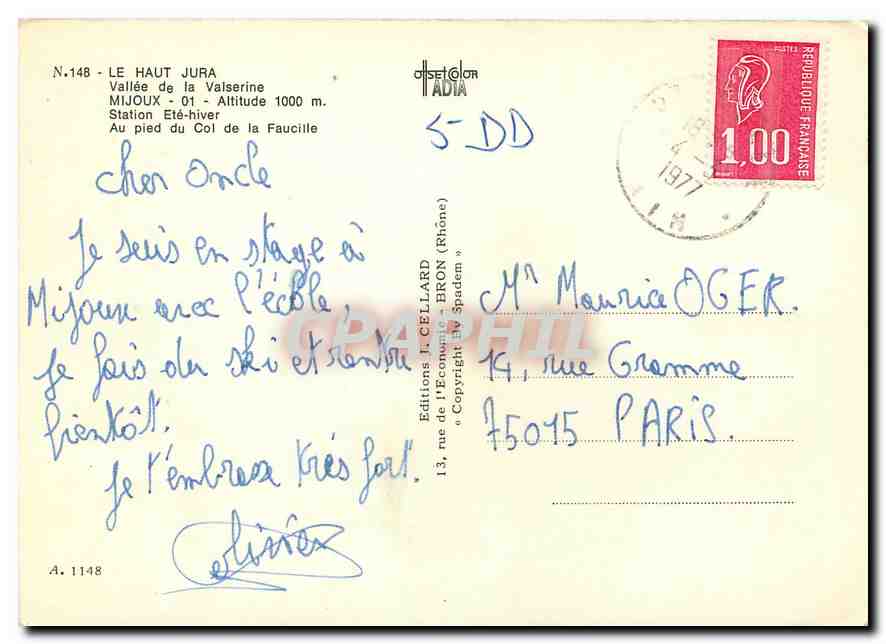 N.148 - LE HAUT JURA
Vallée de la Valserine
MIJOUX - 01 - Altitude 1000 m.
Station Eté-hiver
Au pied du Col de la Faucille
Cher Oncle
Je suis en stage à
Mijoux avec l'école,
je fais du ski et rentre
bientôt.
Je t'embrasse très fort.
Olivier
A. 1148
offset color
ADIA
5-DD
Editions J. CELLARD
13, rue de l'Economie - BRON (Rhône)
« Copyright By Spadem »
POSTES
REPUBLIQUE FRANÇAISE
1,00
18
4 -
1977
Mr Maurice OGER.
14, rue Gramme
75015 PARIS.
CPAPHIL